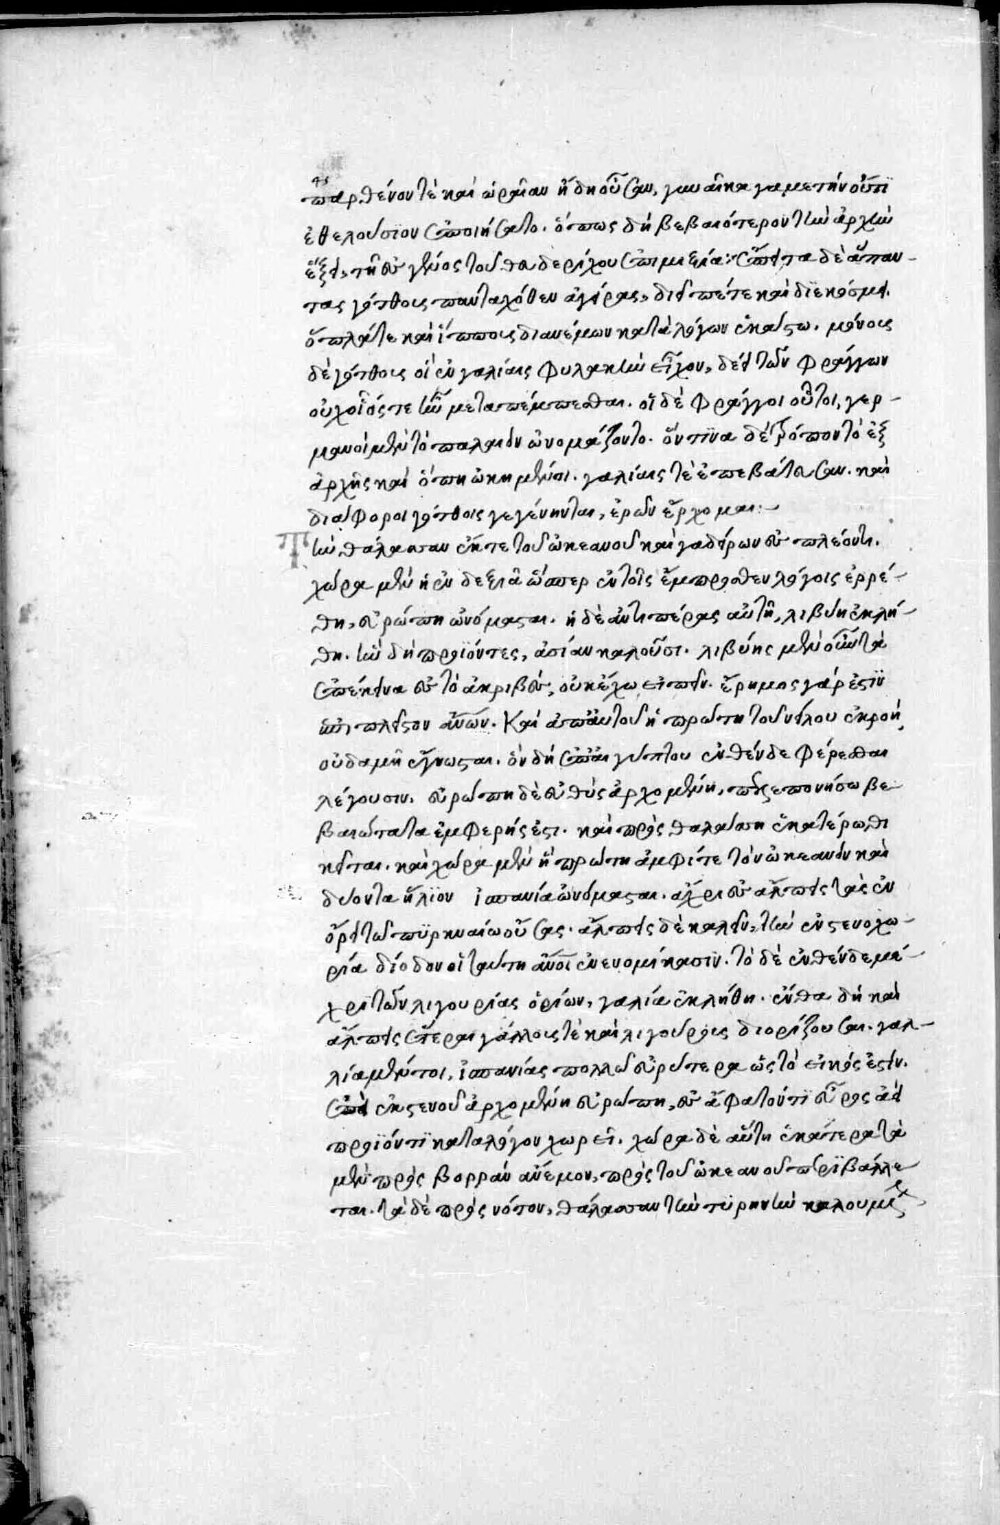 παρθένον τὲ καὶ ὡραίαν ἤδη οὖσαν, γυναῖκα γαμετὴν οὔτι
ἐθελούσιον ἐποιήσατο. ὅπως δὴ βεβαιότερον τὴν ἀρχὴν
ἕξει, τῆ ἐς γένος τοῦ θευδερίχου ἐπιμιξία· ἔπειτα δὲ ἅπαν-
τας γότθους πανταχόθεν ἀγείρας, διεῖπέ τε καὶ διεκόσμει.
ὅπλά τε καὶ ἵππους διανέμων κατὰ λόγον ἑκάστω. μόνους
δὲ γότθους οἳ ἐν γαλίαις φυλακὴν εἶχον, δέει τῶν φράγγων
οὐχ οἷός τε ἦν μεταπέμπεσθαι. οἱ δὲ φράγγοι οὗτοι, γερ-
μανοὶ μὲν τὸ παλαιὸν ὠνομάζοντο. ὅντινα δὲ τρόπον τὸ ἐξ
ἀρχῆς καὶ ὅπη ὠκημένοι. γαλίαις τὲ ἐπεβάτευσαν. καὶ
διάφοροι γότθοις γεγένηνται, ἐρῶν ἔρχομαι:
Τὴν θάλασσαν ἔκ τε τοῦ ὠκεανοῦ καὶ γαδείρων ἐσπλέοντι.
χώρα μὲν ἡ ἐν δεξιᾶ ὥσπερ ἐν τοῖς ἔμπροσθεν λόγοις ἐρρέ-
θη, εὐρώπη ὠνόμασται. ἡ δὲ ἀντιπέρας αὐτῆ, λιβύη ἐκλή-
θη. ἣν δὴ προϊόντες, ἀσίαν καλοῦσι. λιβύης μὲν οὖν τὰ
ἐπέκεινα ἐς τὸ ἀκριβὲς, οὐκ ἔχω εἰπεῖν. ἔρημος γάρ ἐστιν
ἐπι πλεῖστον ἀνῶν. Καὶ ἀπ' αὐτοῦ ἡ πρώτη τοῦ νείλου ἐκροὴ
οὐδαμῆ ἔγνωσται. ὃν δὴ ἐπ' αἰγύπτου ἐνθένδε φέρεσθαι
λέγουσιν. εὐρώπη δὲ εὐθὺς ἀρχομένη, πελοποννήσω βε-
βαιότατα ἐμφερής ἐστι. καὶ πρὸς θαλάσση ἑκατέρωθι
κεῖται. καὶ χώρα μὲν ἣ πρώτη ἀμφί τε τὸν ὠκεανὸν καὶ
δύοντα ἥλιον ἱσπανία ὠνόμασται. ἄχρι ἐς ἄλπεις τὰς ἐν
ὄρει τῶ πυρηναίω οὔσας. ἄλπεις δὲ καλεῖν, τὴν ἐν στενοχω-
ρία δίοδον οἱ ταύτη ἀνοι ἐνενομίκασιν. τὸ δὲ ἐνθένδε μέ-
χρι τῶν λιγουρίας ὁρίων, γαλία ἐκλήθη. ἔνθα δὴ καὶ
ἄλπεις ἕτεραι γάλλους τὲ καὶ λιγούρους διορίζουσι. γαλ-
λία μέντοι, ἱσπανίας πολλῶ εὐρυτέρα ὡς τὸ εἰκός ἐστιν.
ἐπεὶ ἐκ στενοῦ ἀρχομένη εὐρώπη, ἐς ἄφατόν τι εὖρος ἀεὶ
προϊόντι κατὰ λόγον χωρεῖ. χώρα δὲ αὕτη ἑκατέρα τὰ
μὲν πρὸς βορρᾶν ἄνεμον, πρὸς τοῦ ὠκεανοῦ περιβάλλε-
ται. τὰ δὲ πρὸς νότον, θάλασσαν τὴν τυρηνὴν καλουμέ